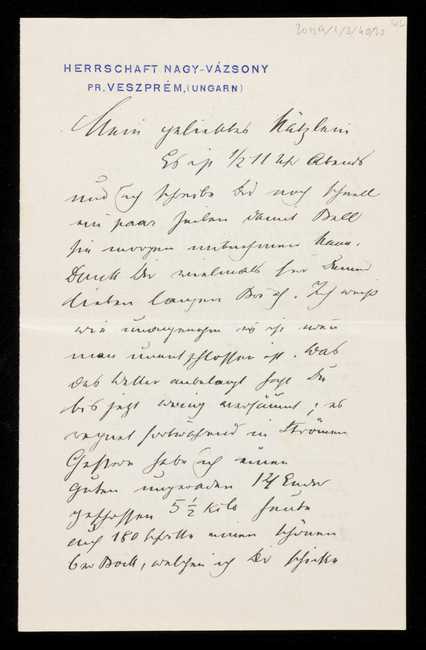 HERRSCHAFT NAGY-VÁZSONY
PR. VESZPRÉM, (UNGARN)
Mein geliebtes Kätzlein
Es ist 1/2 11 Uhr Abends
und ich schreibe Dir noch schnell
ein paar Zeilen damit Bell
sie morgen mitnehmen kann.
Dank Dir vielmals für Deinen
lieben langen Brief. Ich weiß
wie unangenehm es ist wenn
man unentschlossen ist. Was
das Wetter anbelangt hast Du
bis jetzt wenig versäumt; es
regnet fortwährend in Strömen
Gestern habe ich einen
guten ungeraden 14 Ender
geschossen 5 1/2 Kilo heute
auf 180 Schritte einen schönen
6er Bock, welchen ich Dir schicke